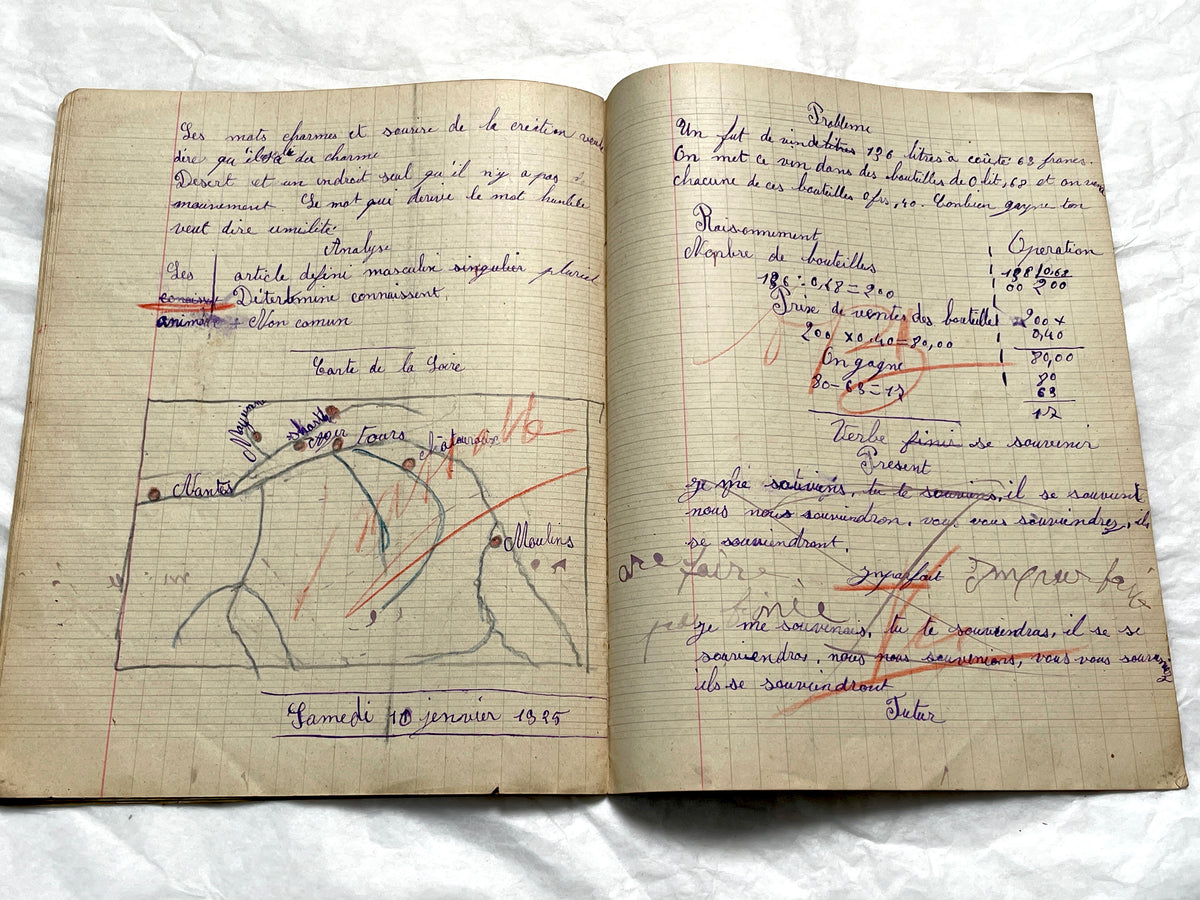 Les mots charmes et sourire de la création veule
dire qu'il a du charme
Desert et un indroit seul qu'il n'y a pas de
mouvement Le mot qui derive le mot humble
veut dire umilité
Analyse
Les article defini masculin singulier pluriel
Détertmine connaissent,
animaux + Non comun
Carte de la Loire
Mayenne
Sharte
Loir
Tours
Châtouroux
Nantes
Moulins
Samedi 10 jenvier 1925
Probleme
Un fut de vin de litres 136 litres à coûté 63 francs.
On met ce vin dans des bouteilles de 0 lit,68 et on vend
chacune de ces bouteilles 0 frs,40. Combien gagne ton
Raisonnement
Operation
Nombre de bouteilles
136 0,68
136 : 0,68 = 200
00 200
Prixe de ventes des bouteilles
200 ×
200 × 0,40 = 80,00
0,40
80,00
On gagne
80
80 - 63 = 17
63
17
Verbe finir se souvenir
Present
je me souviens, tu te souviens, il se souvient
nous nous souviendron, vous vous souviendrez, ils
se souviendront.
are faire
imparfait Imparfait
je me souvenais, tu te souviendras, il se se
souviendras, nous nous souvenions, vous vous souveniez
ils se souviendront
Futur